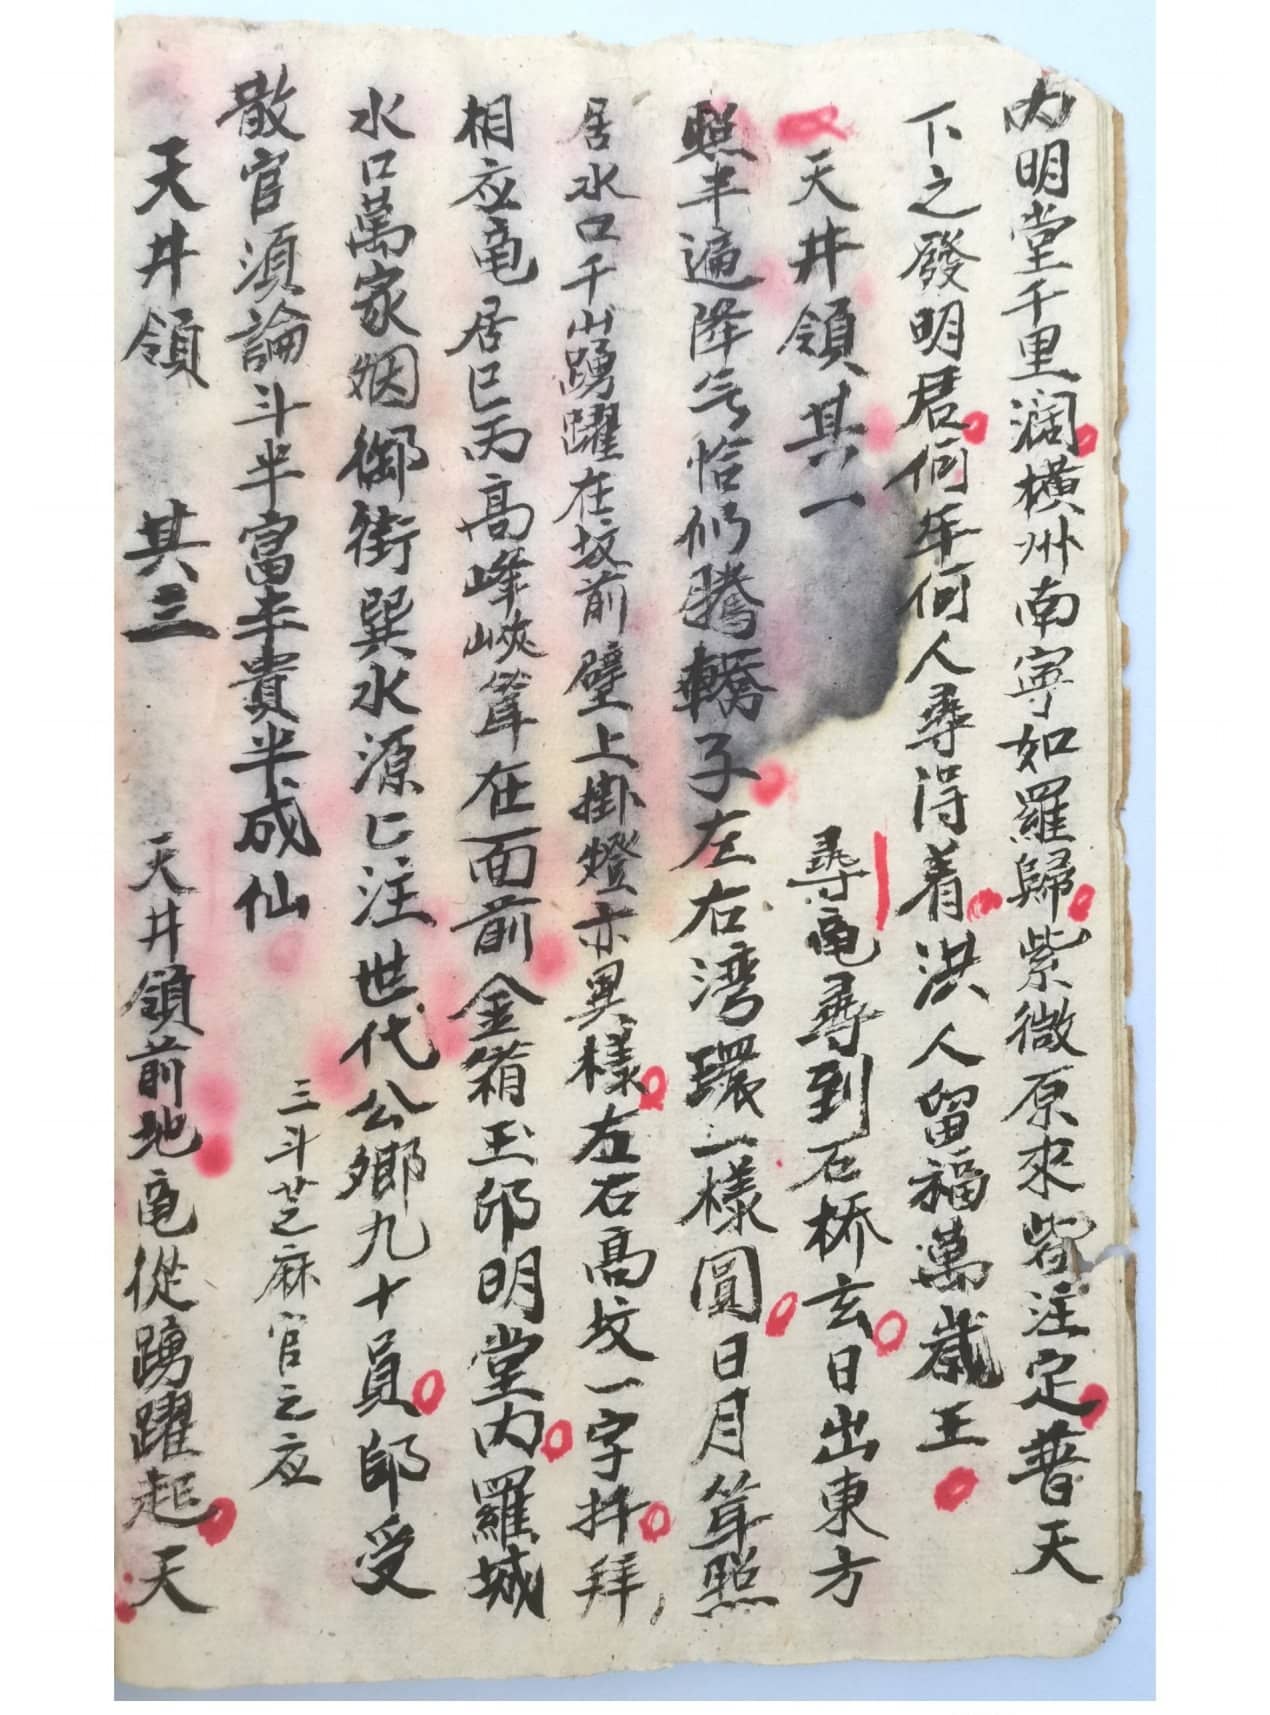 内明堂千里濶橫州南寧如羅歸紫微原來皆注定普天
下之發明君何年何人尋得着洪人留福萬歲王
天井領其一 尋龟尋到石桥玄日出東方
照半遍降气恰们騰轎子左右湾環一樣圓日月耸照
居水口千山踴躍在坟前壁上掛燈亦異樣左右高坟一字拝拜
相应龟居巳丙高峰峽耸在面前金箱玉邱明堂内羅城
水口萬家烟御街巽水源匕注世代公鄉九十員師受
散官須論斗半富半貴半成仙 三斗芝麻官之应
天井領 其三 天井領前地龟從踴躍起天